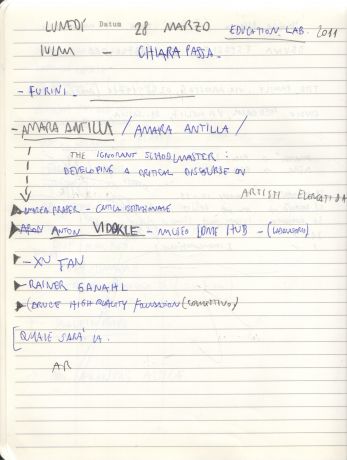 LUNEDÍ Datum 28 MARZO EDUCATION LAB. 2011
IULM - CHIARA PASSA.
- FURINI.
- AMARA ANTILLA / AMARA ANTILLA /
THE IGNORANT SCHOOLMASTER :
DEVELOPING A CRITICAL DISCOURSE ON
ARTISTI ELENCATI DA
ANDREA FRASER -
ANTON VIDOKLE - HUB -
- XU TAN
- RAINER GANAHL
- (BRUCE HIGH QUALITY FOUNDATION (COLLETTIVO)
[QUALE SARÀ LA.
AR